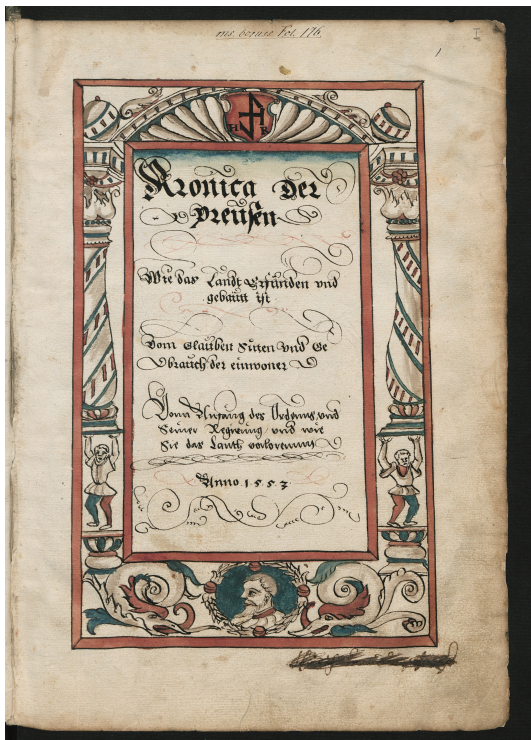 ms. boruss. Fol. 176.
I
1
H R
Kronica Der
Preusen
Wie das Landt Erfunden vnd
gebautt ist
Vom Glauben Sitten Vnd Ge
brauch der einwoner
Vonn Anfang des Ordenns, vnd
Seiner Regirung, vnd wie
Sie das Lanth vorlorenn
Anno 1553